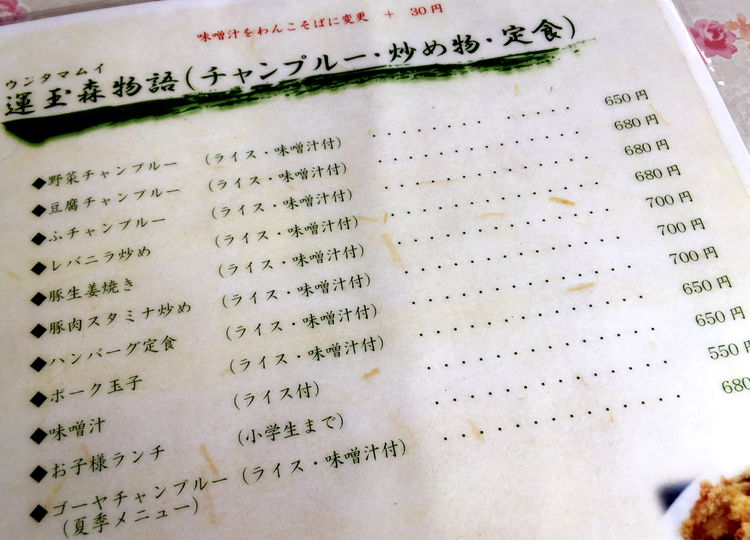 味噌汁をわんこそばに変更 + 30円
ウンタマムイ
運玉森物語(チャンプルー・炒め物・定食)
◆野菜チャンプルー (ライス・味噌汁付) 650円
◆豆腐チャンプルー (ライス・味噌汁付) 680円
◆ふチャンプルー (ライス・味噌汁付) 680円
◆レバニラ炒め (ライス・味噌汁付) 680円
◆豚生姜焼き (ライス・味噌汁付) 700円
◆豚肉スタミナ炒め (ライス・味噌汁付) 700円
◆ハンバーグ定食 (ライス・味噌汁付) 700円
◆ポーク玉子 (ライス・味噌汁付) 650円
◆味噌汁 (ライス付) 650円
◆お子様ランチ (小学生まで) 550円
◆ゴーヤチャンプルー (ライス・味噌汁付) 680
(夏季メニュー)